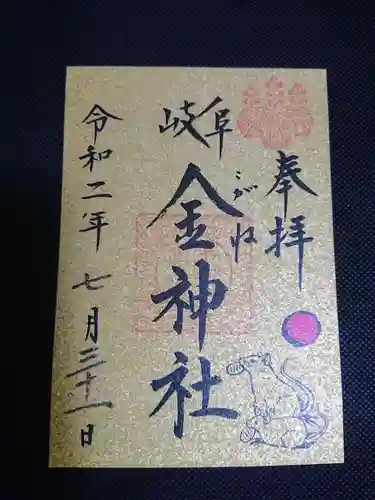 奉拝
岐阜
金神社
こがね
令和二年七月三十一日